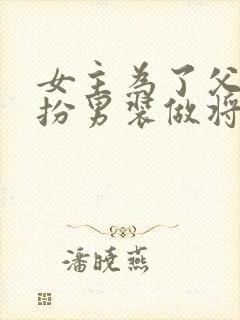 女主为了父
扮男装做将
潘晓燕